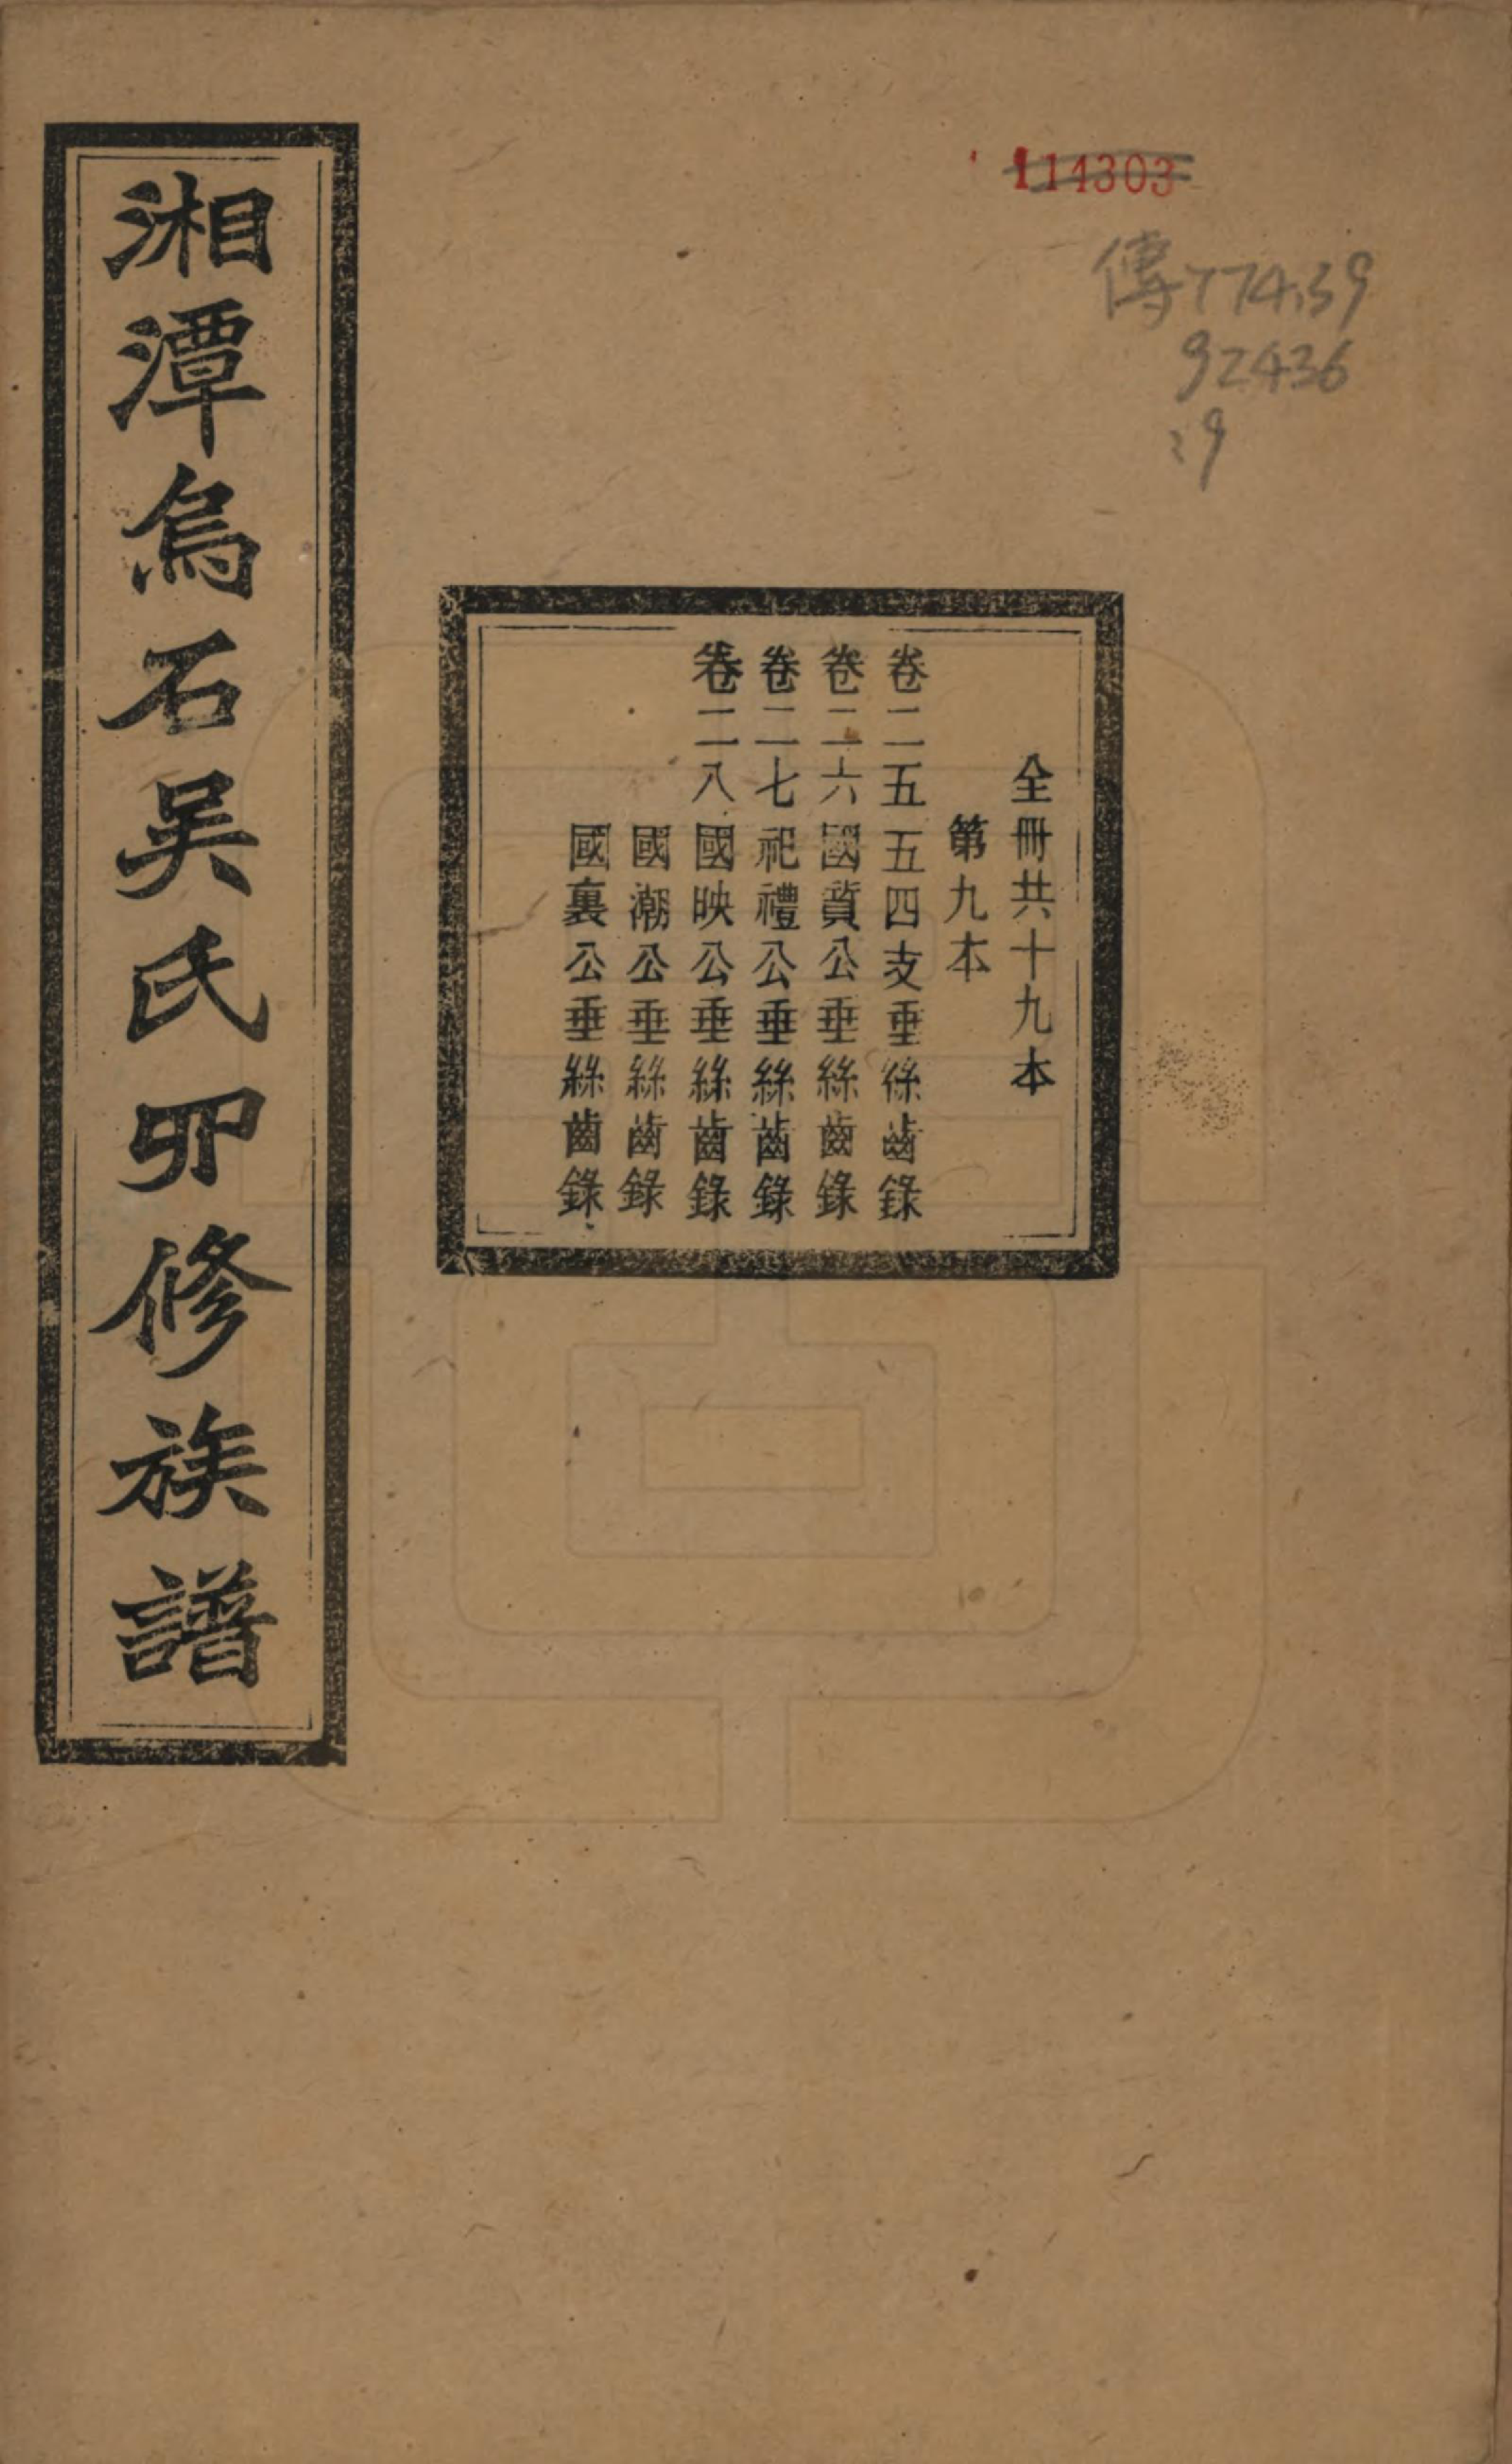 114303
傳774.39
92436
:9
全冊共十九本
第九本
卷二五 五四支垂絲齒錄
卷二六 國質公垂絲齒錄
卷二七 祀禮公垂絲齒錄
卷二八 國映公垂絲齒錄
國潮公垂絲齒錄
國裏公垂絲齒錄
湘潭烏石吳氏卯修族譜